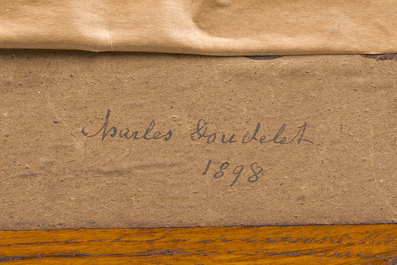 Charles Doudelet
1898